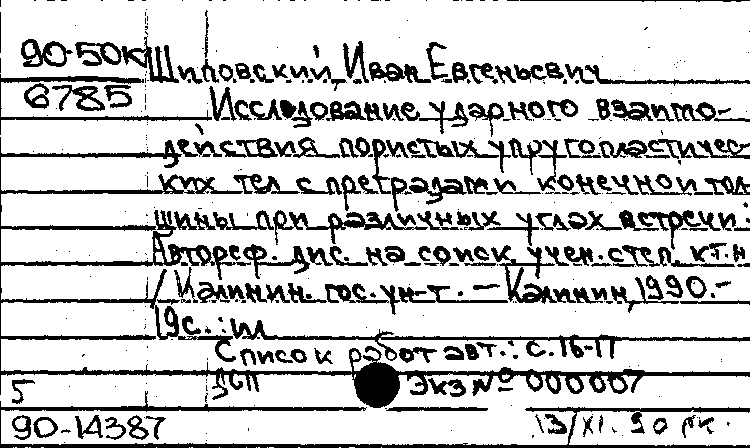 90-50к Шиповский, Иван Евгеньевич
6785 Исследование ударного взаимо-
действия пористых упругопластичес-
ких тел с преградами конечной тол-
щины при различных углах встречи:
Автореф. дис. на соиск. учен. степ. к.т.н
/ Калинин. гос. ун-т. – Калинин, 1990.-
19с.:ил
Список работ авт.: с.16-17
5 ДСП Экз № 000007
90-14387 13/XI.90 рк.